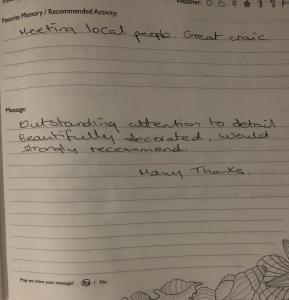 Weather:
Favorite Memory / Recommended Activity:
Meeting local people. Great craic
Message:
Outstanding attention to detail
Beautifully decorated, would
strongly recommend.
Many Thanks.
May we share your message? / No